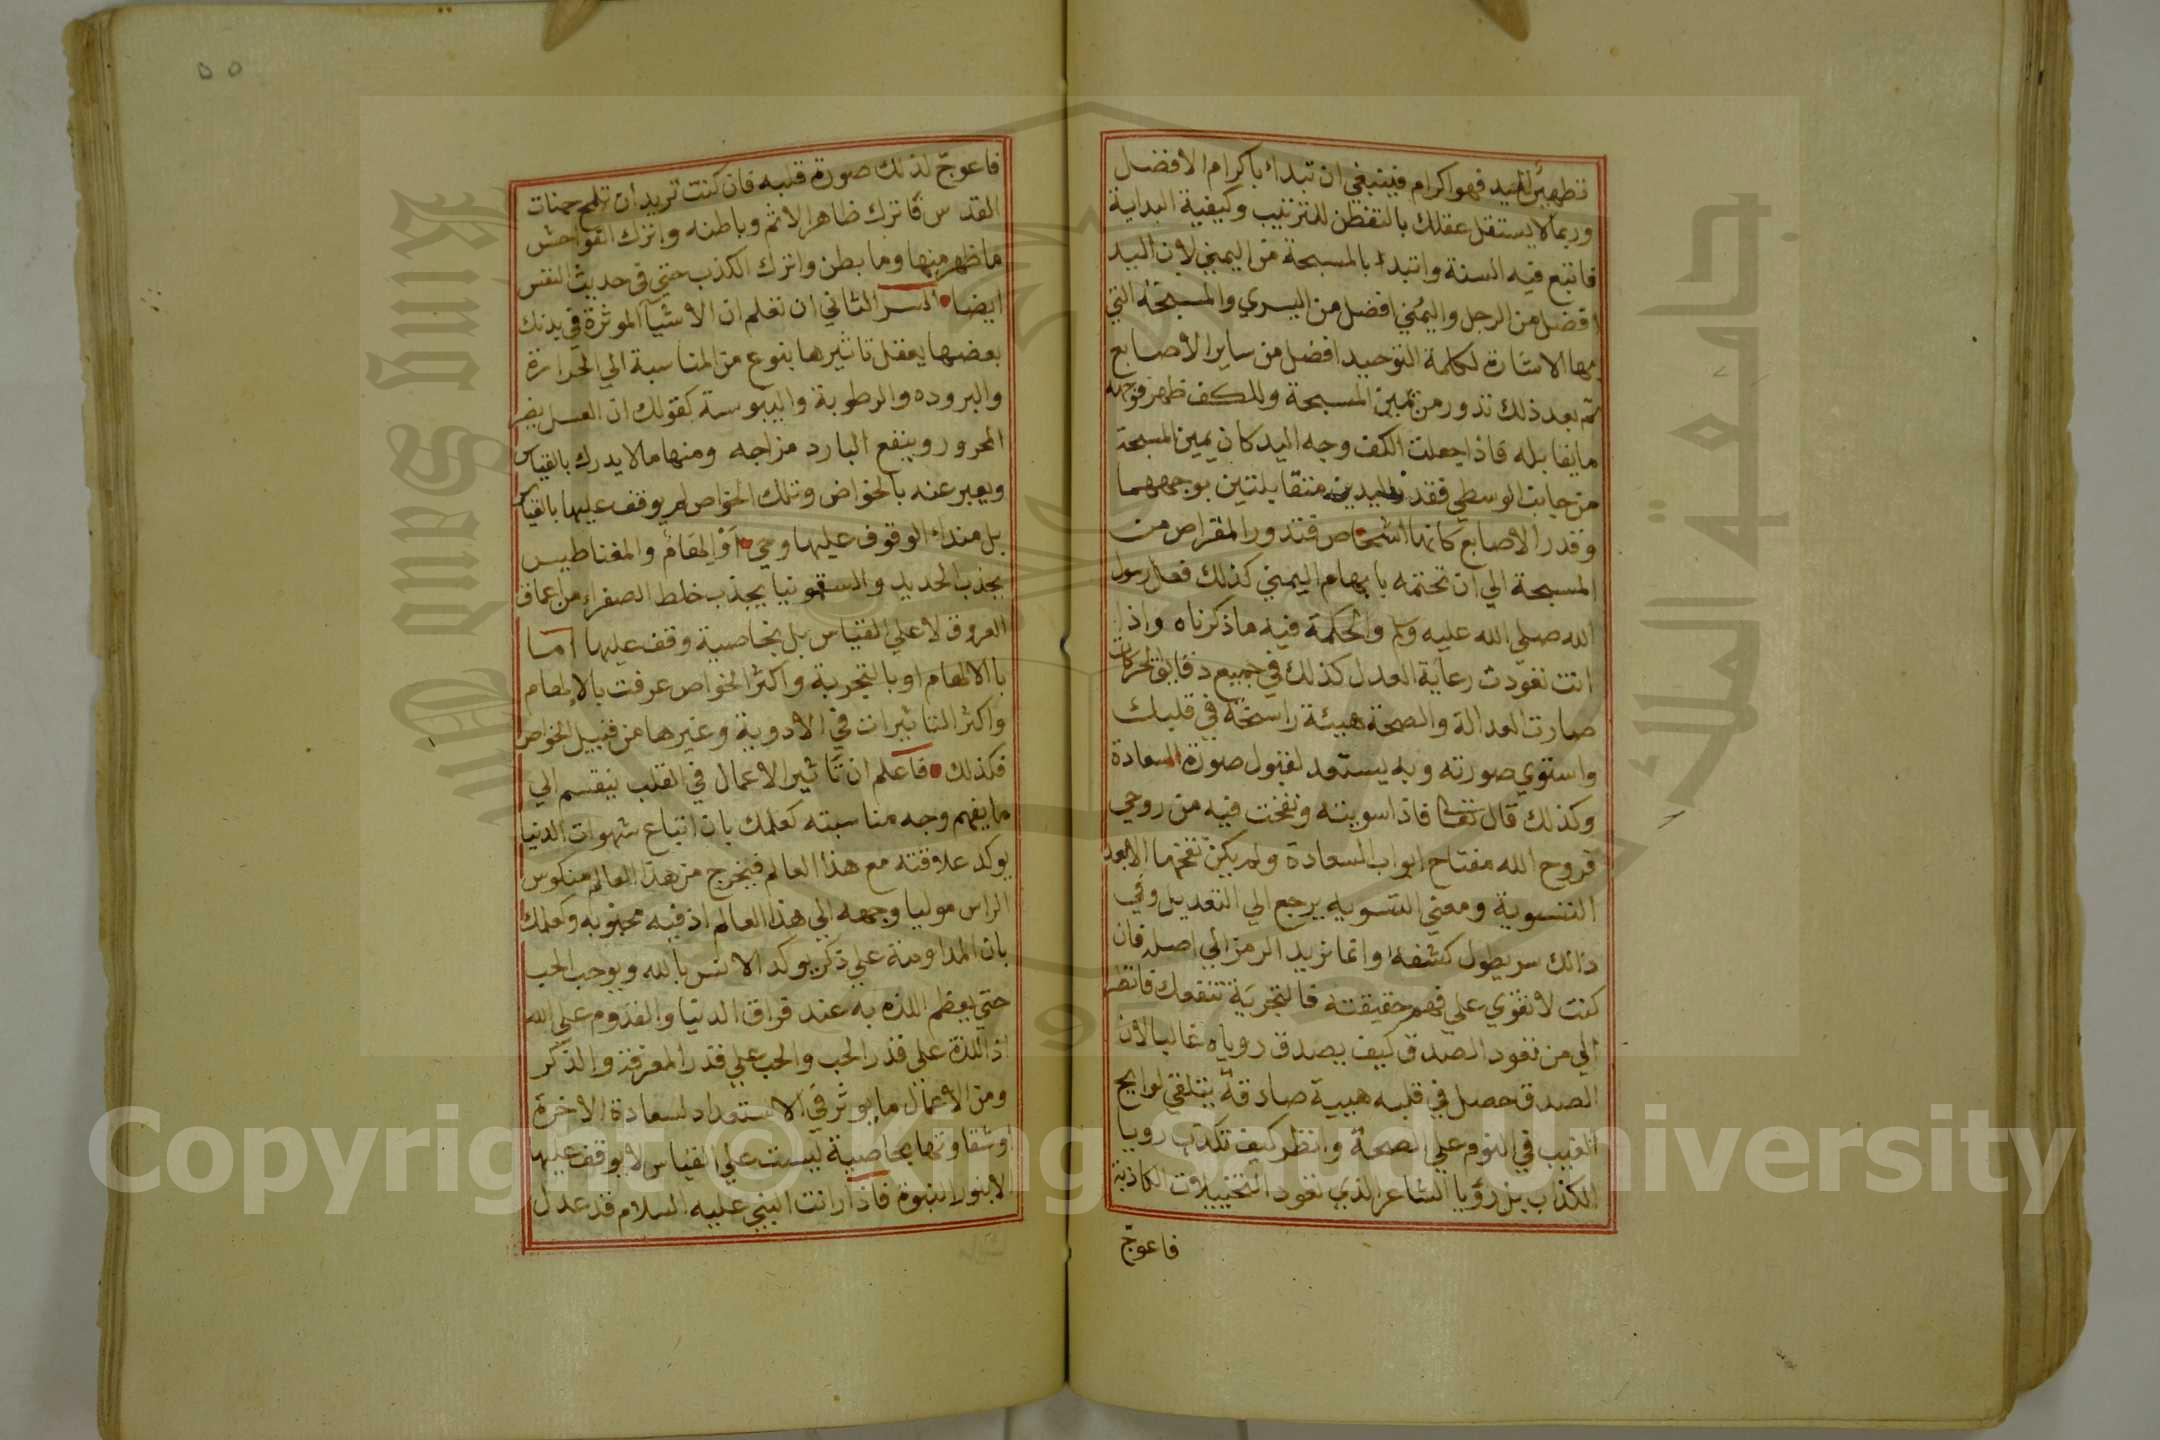 تطهير لليد فهو اكرام فينبغي ان تبداء باكرام الافضل
وربما لا يستقل عقلك بالتفطن للترتيب وكيفية البداية
فاتبع فيه السنة وابتدا بالمسبحة من اليمني لان اليد
افضل من الرجل واليمني افضل من اليسري والمسبحة التي
بها الاشارة لكلمة التوحيد افضل من ساير الاصابع
ثم بعد ذلك تدور من يمين المسبحة وللكف ظهر فوجهه
ما يقابله فاذا جعلت الكف وجه اليد كان يمين المسبحة
من جانب الوسطي فقدر اليدين متقابلتين بوجههما
وقدر الاصابع كانها اشخاص فتدور المقراض من
المسبحة الي ان تختمه بابهام اليمني كذلك فعل رسول
الله صلي الله عليه وسلم والحكمة فيه ما ذكرناه واذا
انت تعودت رعاية العدل كذلك في جميع دقايق الحركات
صارت العدالة والصحة هيئة راسخة في قلبك
واستوي صورته وبه يستعد لقبول صورة السعادة
وكذلك قال تعالى فاذا سويته ونفخت فيه من روحي
فروح الله مفتاح ابواب السعادة ولم يكن نفخها الا بعد
التسوية ومعني التسويه يرجع الي التعديل وفي
ذالك سر يطول كشفه وانما نريد الرمز الي اصله فان
كنت لا تقوي علي فهم حقيقته فالتجربة تنفعك فانظر
الي من تعود الصدق كيف يصدق روياه غالبا لان
الصدق حصل في قلبه هيية صادقة يتلقي لوايح
الغيب في النوم علي الصحة وانظر كيف تكذب رويا
الكذب بل رؤيا الشاعر الذي تعود التخييلات الكاذبة
فاعوجّ
٥٥
فاعوجّ لذلك صورة قلبه فان كنت تريد ان تلمح جنات
القدس فاترك ظاهر الاثم وباطنه واترك الفواحش
ما ظهر منها وما بطن واترك الكذب حتي في حديث النفس
ايضا السر الثاني ان تعلم ان الاشيآ الموثرة في بدنك
بعضها يعقل تاثيرها بنوع من المناسبة الي الحرارة
والبروده والرطوبة واليبوسة كقولك ان العسل يضر
المحرور وينفع البارد مزاجه ومنها ما لا يدرك بالقياس
ويعبر عنه بالخواص وتلك الخواص لم يوقف عليها بالقياس
بل مبداء الوقوف عليها وحي او الهام والمغناطيس
يجذب الحديد والسقمونيا يجذب خلط الصفراء من اعماق
العروق لا علي القياس بل بخاصية وقف عليها اما
بالالهام او بالتجربة واكثر الخواص عرفت بالالهام
واكثر التاثيرات في الادوية وغيرها من قبيل الخواص
فكذلك فاعلم ان تاثير الاعمال في القلب ينقسم الي
ما يفهم وجه مناسبته كعلمك بان اتباع شهوات الدنيا
يوكد علاقته مع هذا العالم فيخرج من هذا العالم منكوس
الراس موليا وجهه الي هذا العالم اذ فيه محبوبه وكعلمك
بان المداومة علي ذكر يوكد الانس بالله ويوجب الحب
حتي يعظم اللذه به عند فراق الدنيا والقدوم علي الله
اذ اللذة علي قدر الحب والحب علي قدر المعرفة والذكر
ومن الاعمال ما يوثر في الاستعداد لسعادة الاخرة
اوشقاوتها بخاصية ليست علي القياس لا يوقف عليها
الا بنور النبوة فاذا رانت النبي عليه السلام قد عدل